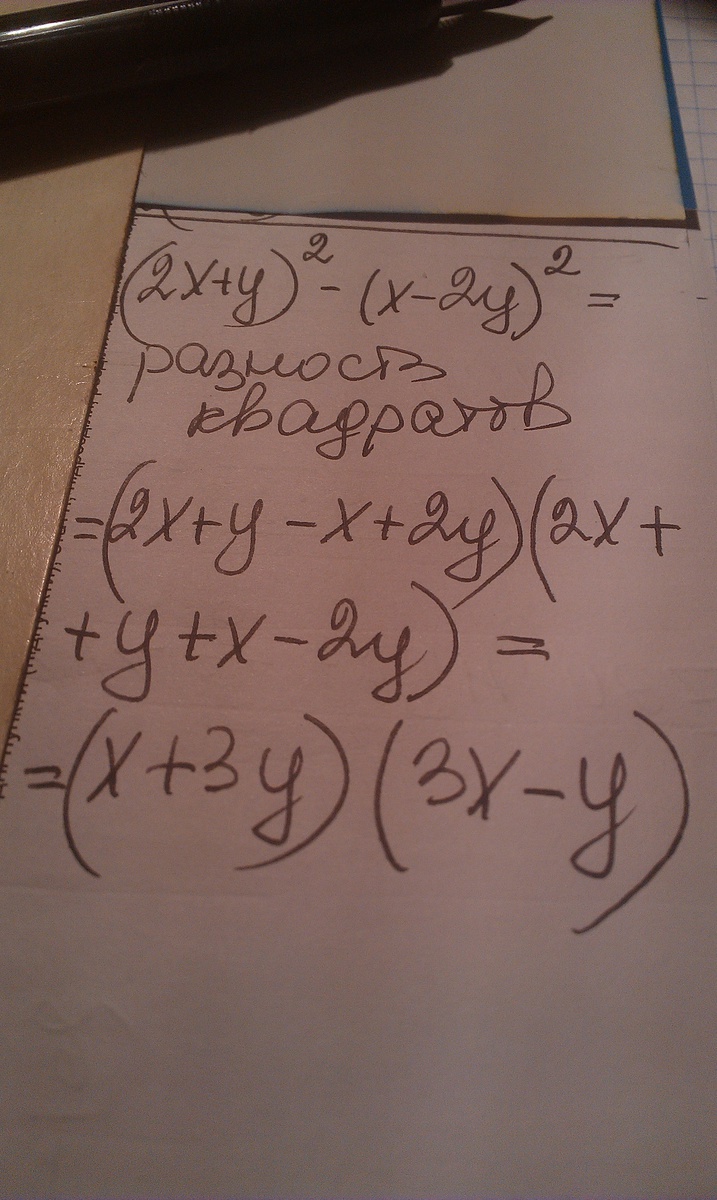 (2x+y)² - (x-2y)² =
разность
квадратов
=(2x+y-x+2y)(2x+
+y+x-2y) =
=(x+3y)(3x-y)